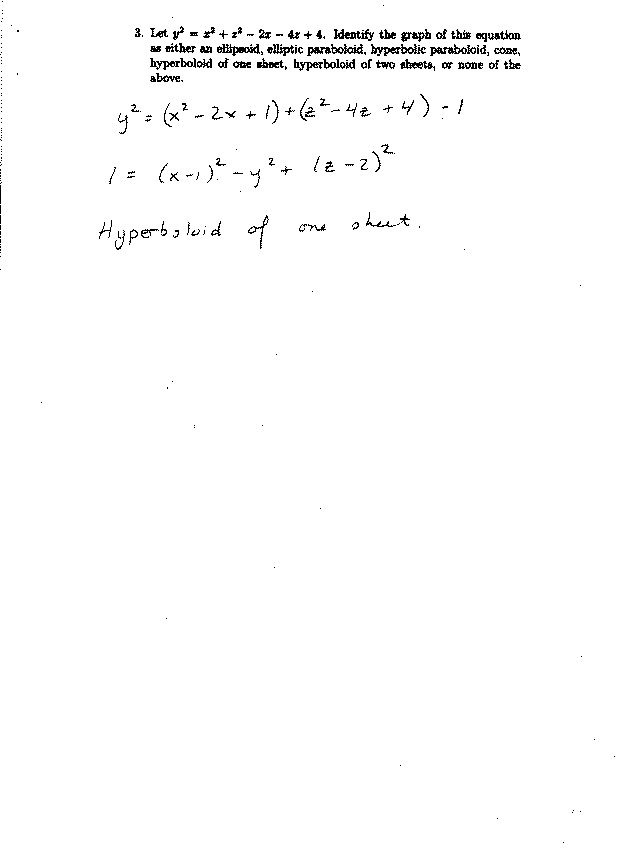 3. Let y² = x² + z² − 2x − 4z + 4. Identify the graph of this equation
as either an ellipsoid, elliptic paraboloid, hyperbolic paraboloid, cone,
hyperboloid of one sheet, hyperboloid of two sheets, or none of the
above.
y² = (x² − 2x + 1) + (z² − 4z + 4) − 1
1 = (x − 1)² − y² + (z − 2)²
Hyperboloid of one sheet.